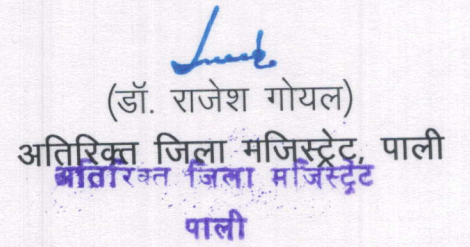 (डॉ. राजेश गोयल)
अतिरिक्त जिला मजिस्ट्रेट, पाली
अतिरिक्त जिला मजिस्ट्रेट
पाली